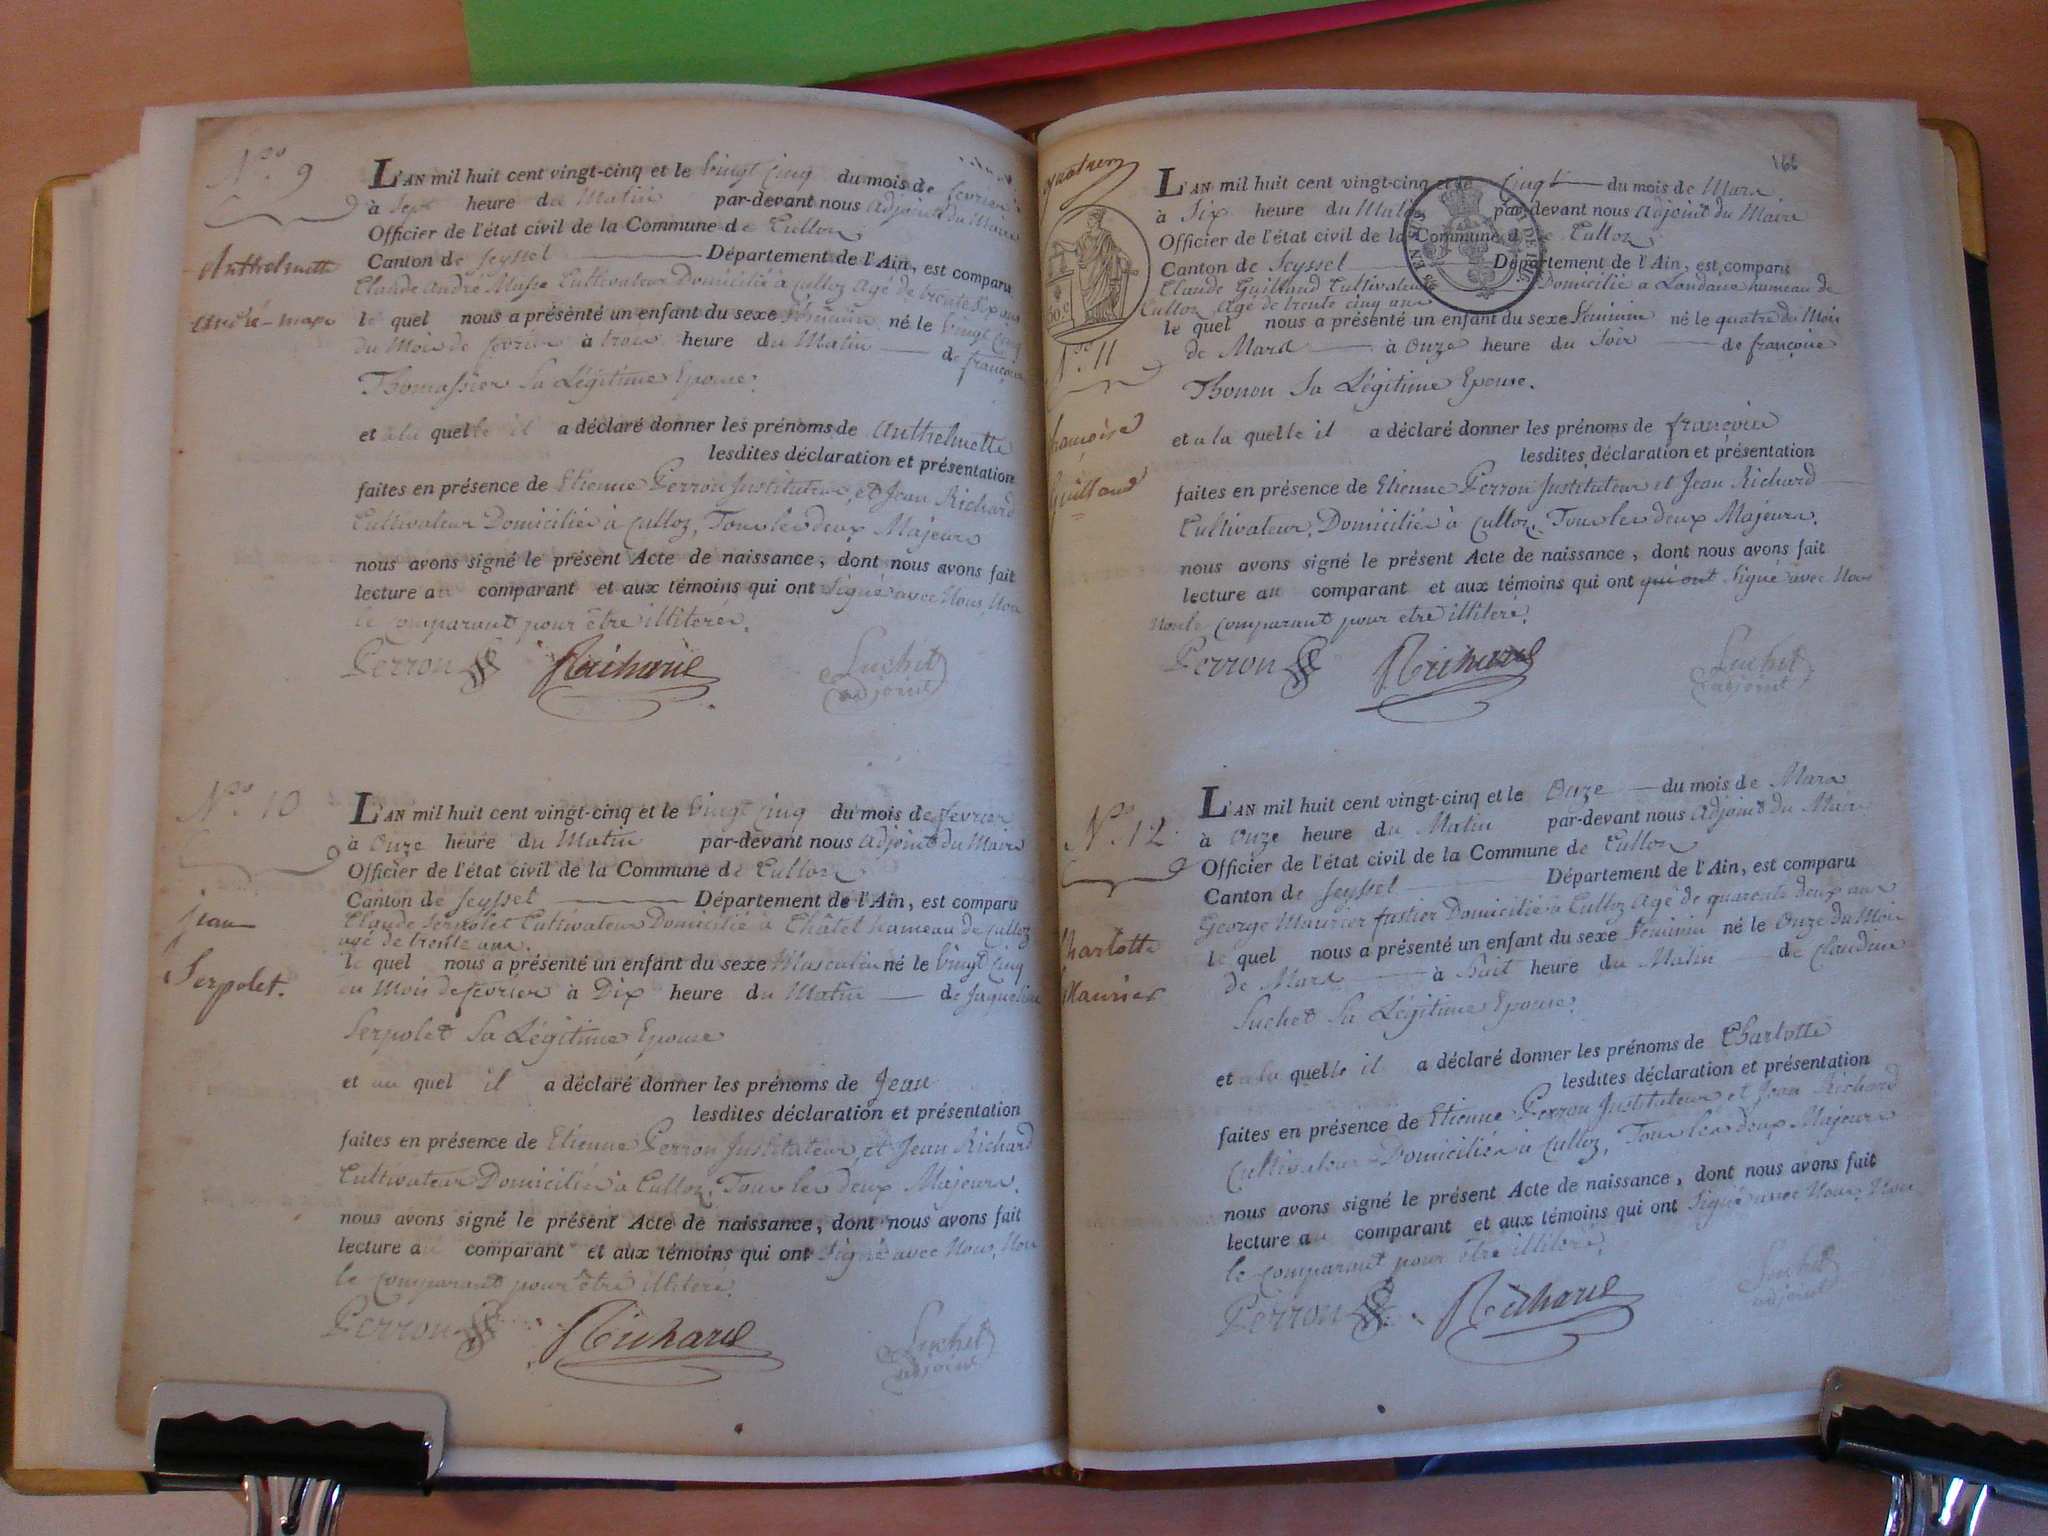 N.º 9
L'AN mil huit cent vingt-cinq et le vingt cinq du mois de fevrier
à Sept heure du Matin par-devant nous adjoint du Maire
Officier de l'état civil de la Commune de Culloz
Canton de Seyssel Département de l'Ain, est comparu
Claude André Cultivateur Domicilié à Culloz Agé de trente Six ans
Anthelmette
le quel nous a présenté un enfant du sexe féminin né le vingt cinq
du Mois de fevrier à trois heure du Matin de françoise
Thomassier Sa Légitime Epouse.
et a la quelle il a déclaré donner les prénoms de Anthelmette
lesdites déclaration et présentation
faites en présence de Etienne Perron Instituteur, et Jean Richard
Cultivateur Domiciliés à Culloz, Tous les deux Majeurs
nous avons signé le présent Acte de naissance, dont nous avons fait
lecture au comparant et aux témoins qui ont Signé avec Nous, Non
le comparant pour être illiteré.
Perron Richard Suchet
adjoint
N.º 10
L'AN mil huit cent vingt-cinq et le vingt cinq du mois de fevrier
à Onze heure du Matin par-devant nous adjoint du Maire
Officier de l'état civil de la Commune de Culloz
Canton de Seyssel Département de l'Ain, est comparu
Claude Serpolet Cultivateur Domicilié à Châtel hameau de Culloz
agé de trente ans.
Jean
Serpolet.
le quel nous a présenté un enfant du sexe Masculin né le vingt cinq
du Mois de fevrier à Dix heure du Matin de Jaqueline
Serpolet Sa Légitime Epouse
et au quel il a déclaré donner les prénoms de Jean
lesdites déclaration et présentation
faites en présence de Etienne Perron Instituteur, et Jean Richard
Cultivateur Domiciliés à Culloz, Tous les deux Majeurs.
nous avons signé le présent Acte de naissance, dont nous avons fait
lecture au comparant et aux témoins qui ont Signé avec Nous, Non
le comparant pour être illiteré.
Perron Richard Suchet
adjoint
166
N.º 11
L'AN mil huit cent vingt-cinq et le Cinq du mois de Mars
à Six heure du Matin par-devant nous adjoint du Maire
Officier de l'état civil de la Commune de Culloz
Canton de Seyssel Département de l'Ain, est comparu
Claude Guilland Cultivateur Domicilié a Landaize hameau de
Culloz Agé de trente cinq ans
françoise
Guilland
le quel nous a présenté un enfant du sexe féminin né le quatre du Mois
de Mars à Onze heure du Soir de françoise
Thonon Sa Légitime Epouse.
et a la quelle il a déclaré donner les prénoms de françoise
lesdites déclaration et présentation
faites en présence de Etienne Perron Instituteur et Jean Richard
Cultivateur, Domiciliés à Culloz, Tous les deux Majeurs.
nous avons signé le présent Acte de naissance, dont nous avons fait
lecture au comparant et aux témoins qui ont qui ont Signé avec Nous
Non le comparant pour être illiteré.
Perron Richard Suchet
adjoint
N.º 12
L'AN mil huit cent vingt-cinq et le Onze du mois de Mars
à Onze heure du Matin par-devant nous adjoint du Maire
Officier de l'état civil de la Commune de Culloz
Canton de Seyssel Département de l'Ain, est comparu
George Maurier Domicilié à Culloz Agé de quarente deux ans
Charlotte
Maurier
le quel nous a présenté un enfant du sexe féminin né le Onze du Mois
de Mars à huit heure du Matin de Claudine
Suchet Sa Légitime Epouse.
et a la quelle il a déclaré donner les prénoms de Charlotte
lesdites déclaration et présentation
faites en présence de Etienne Perron Instituteur et Jean Richard
Cultivateur Domiciliés à Culloz, Tous les deux Majeurs
nous avons signé le présent Acte de naissance, dont nous avons fait
lecture au comparant et aux témoins qui ont Signé avec Nous, Non
le comparant pour être illiteré.
Perron Richard Suchet
adjoint